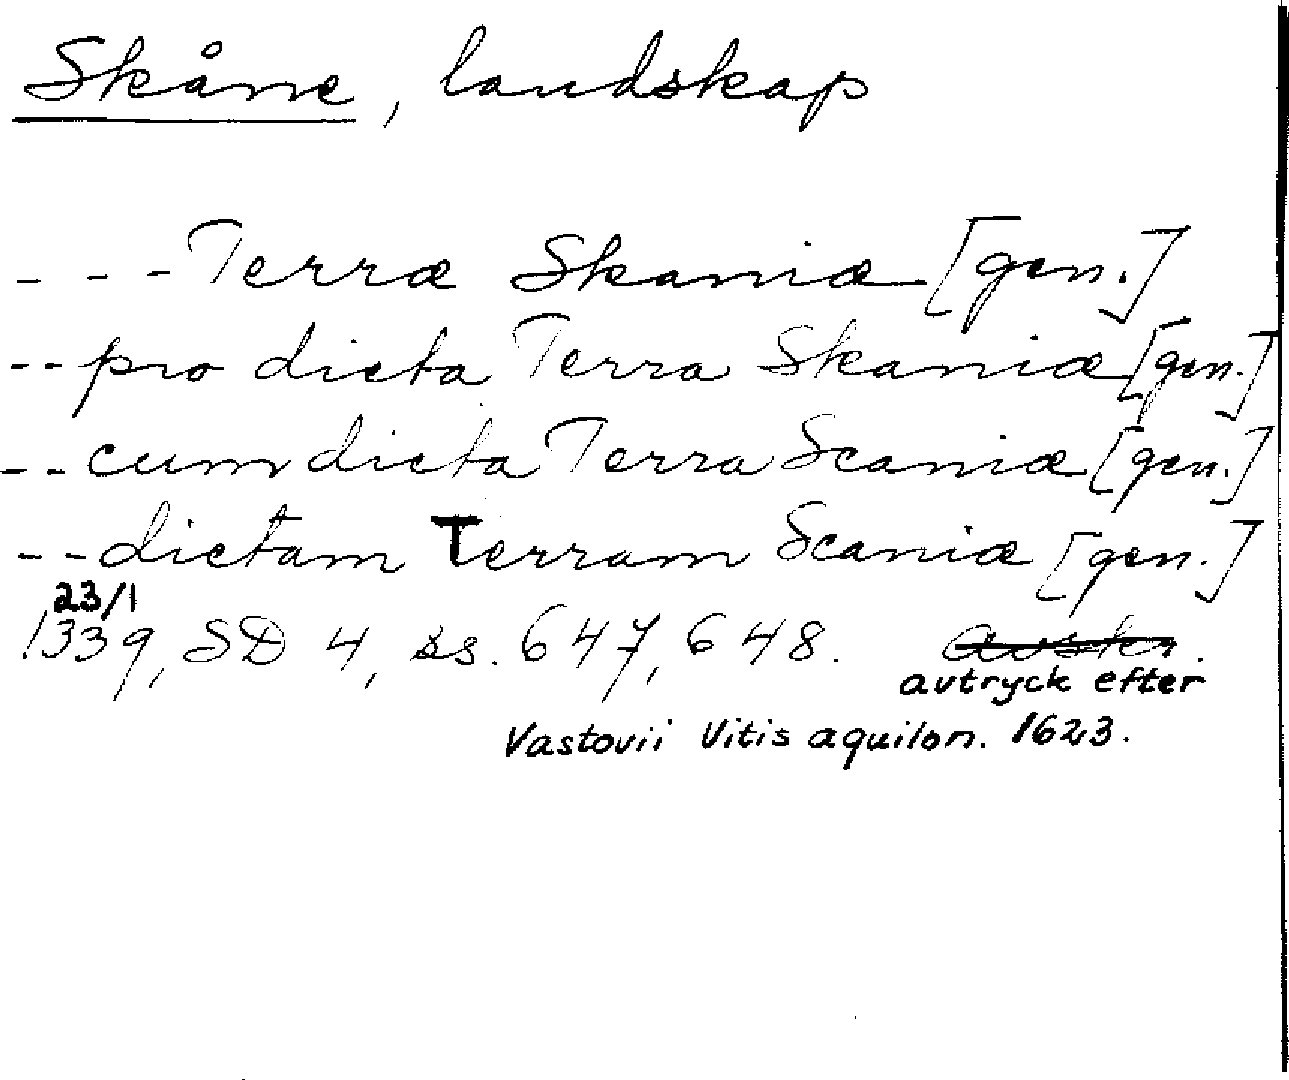 Skåne, landskap
- - - Terræ Skaniæ [gen.]
- - pro dicta Terra Skaniæ [gen.]
- - cum dicta Terra Scaniæ [gen.]
- - dictam Terram Scaniæ [gen.]
23/1
1339, SD 4, ss. 647, 648. avskr.
avtryck efter
Vastovii Vitis aquilon. 1623.